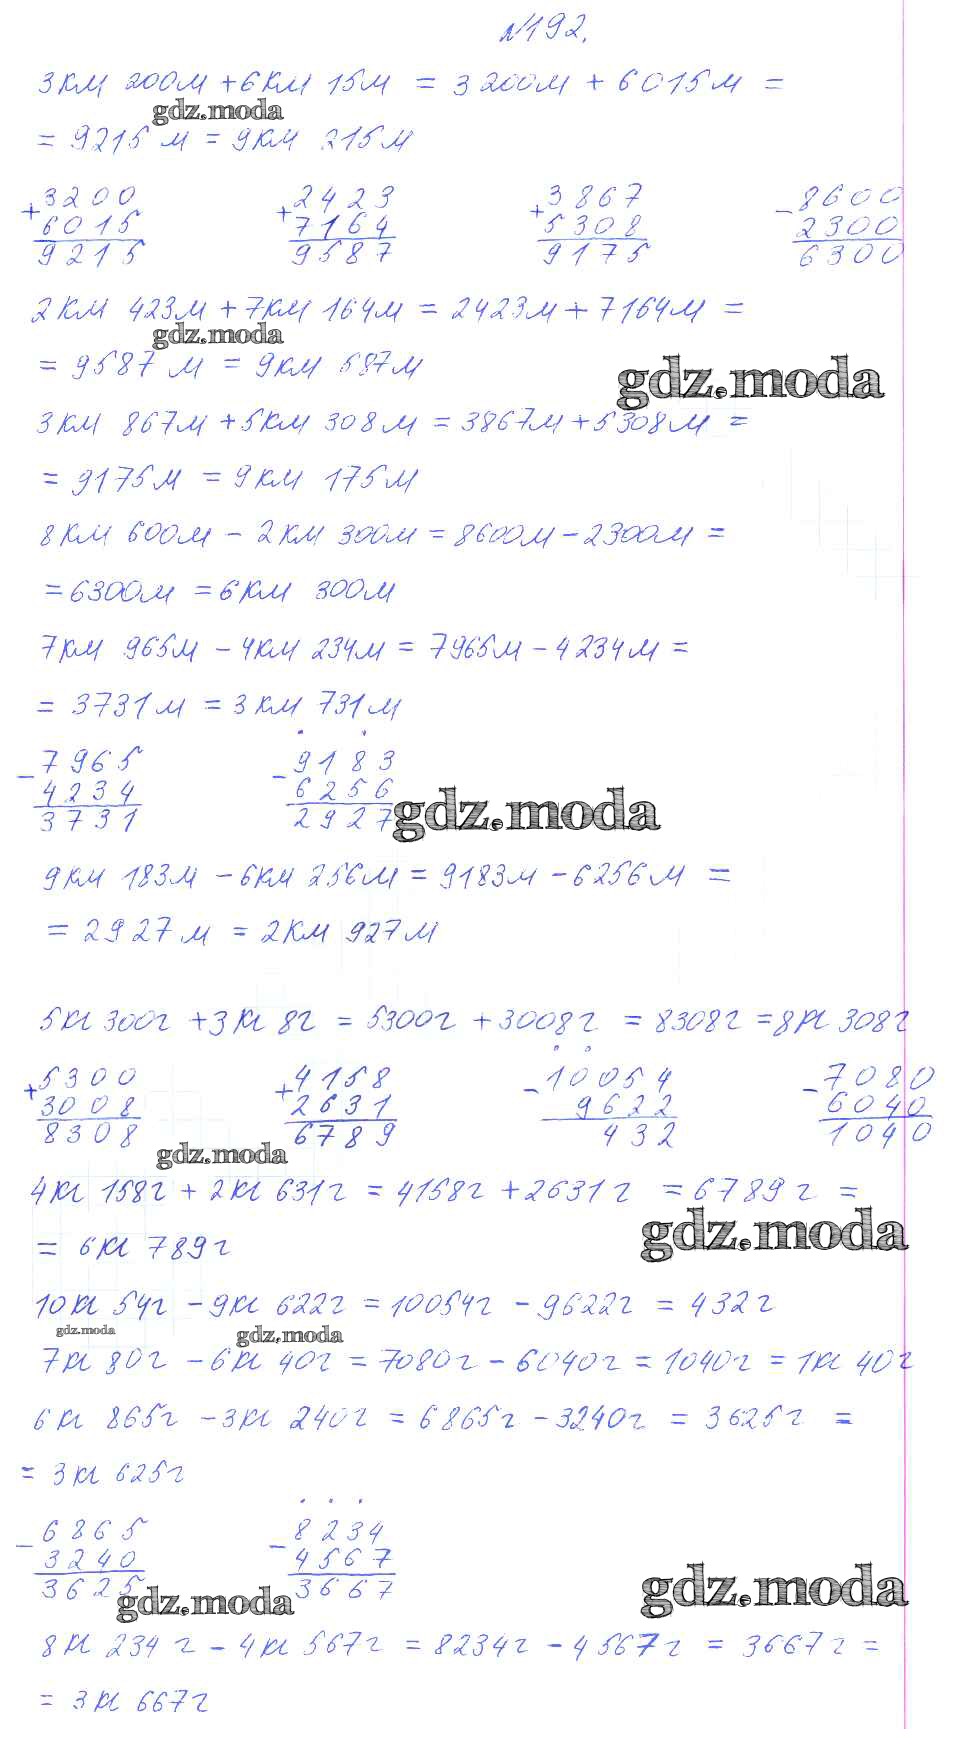 №192.
3км 200м + 6км 15м = 3200м + 6015м =
gdz.moda
= 9215 м = 9км 215м
+ 3200 + 2423 + 3867 - 8600
6015 7164 5308 2300
9215 9587 9175 6300
2км 423м + 7км 164м = 2423м + 7164м =
gdz.moda
= 9587 м = 9км 587м
gdz.moda
3км 867м + 5км 308м = 3867м + 5308м =
= 9175м = 9км 175м
8км 600м - 2км 300м = 8600м - 2300м =
= 6300м = 6км 300м
7км 965м - 4км 234м = 7965м - 4234м =
= 3731м = 3км 731м
- 7965 - 9183
4234 6256
3731 2927
gdz.moda
9км 183м - 6км 256м = 9183м - 6256м =
= 2927м = 2км 927м
5кг 300г + 3кг 8г = 5300г + 3008г = 8308г = 8кг 308г
+ 5300 + 4158 - 10054 - 7080
3008 2631 9622 6040
8308 6789 432 1040
gdz.moda
4кг 158г + 2кг 631г = 4158г + 2631г = 6789г =
gdz.moda
= 6кг 789г
10кг 54г - 9кг 622г = 10054г - 9622г = 432г
gdz.moda gdz.moda
7кг 80г - 6кг 40г = 7080г - 6040г = 1040г = 1кг 40г
6кг 865г - 3кг 240г = 6865г - 3240г = 3625г =
= 3кг 625г
- 6865 - 8234
3240 4567
3625 3667
gdz.moda gdz.moda
8кг 234г - 4кг 567г = 8234г - 4567г = 3667г =
= 3кг 667г